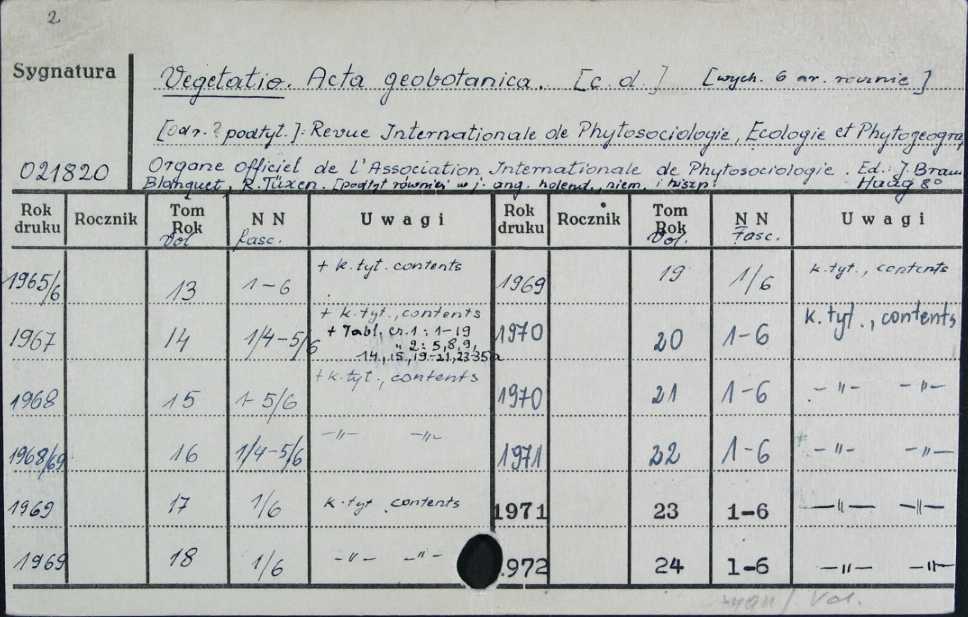 2
Sygnatura
Vegetatio. Acta geobotanica. [c.d.] [wych. 6 nr. rocznie]
[odr.? podtyt.]: Revue Internationale de Phytosociologie, Ecologie et Phytogeogra
021820
Organe Officiel de l'Association Internationale de Phytosociologie. Ed.: J. Braun
Blanquet, R. Tüxen. [podtyt również w j. ang. holend., niem. i hiszp. Haag 8°
Rok druku Rocznik Tom Rok Vol NN fasc. Uwagi Rok druku Rocznik Tom Rok Vol. NN Fasc. Uwagi
1965/6 13 1-6 + k.tyt. contents 1969 19 1/6 k.tyt., contents
1967 14 1/4-5/6 + k.tyt., contents 1970 20 1-6 k.tyt., contents
+ Tabl. cz. 1: 1-19
" 2: 5,8,9,
14, 15, 19-21, 23-35a
1968 15 1-5/6 + k.tyt., contents 1970 21 1-6 -"- -"-
1968/69 16 1/4-5/6 -"- -"- 1971 22 1-6 -"- -"-
1969 17 1/6 k.tyt contents 1971 23 1-6 -"- -"-
1969 18 1/6 -"- -"- 1972 24 1-6 -"- -"-
Vol.